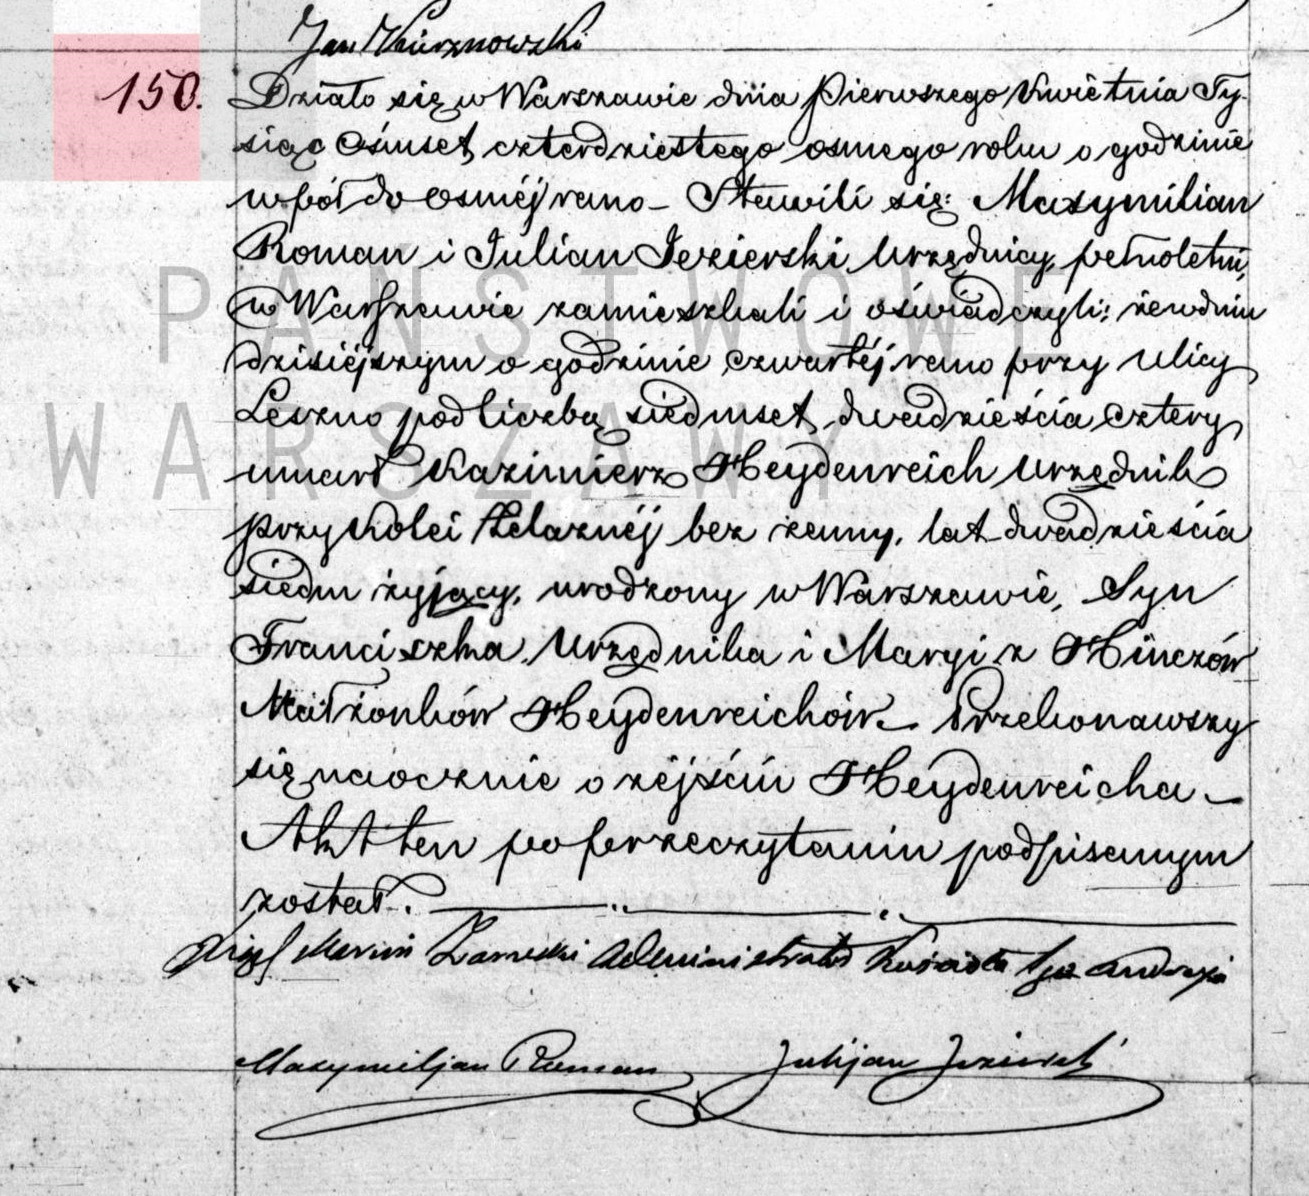 Jan
150.
Działo się w Warszawie dnia Pierwszego Kwietnia Ty-
siąc Ośmset czterdziestego osmego roku o godzinie
wpół do Osméj rano – Stawili się: Maxymilian
Roman i Julian Jezierski, Urzędnicy pełnoletni,
w Warszawie zamieszkali i oświadczyli: że w dniu
dzisiejszym o godzinie czwartéj rano przy Ulicy
Leszno pod liczbą siedmset dwadzieścia cztery
umarł Kazimierz Heydenreich Urzędnik
przy Kolei Żelaznéj bez żenny, lat dwadzieścia
siedm żyjący, urodzony w Warszawie, Syn
Franciszka Urzędnika i Maryi z Hinczów
Małżonków Heydenreichów – Przekonawszy
się naocznie o zéjściu Heydenreicha –
Akt ten po przeczytaniu podpisanym
został.
Marcin Administrator Kościoła Andrzeja
Maxymiljan Roman Julijan Jezierski
PAŃSTWOWE
WARSZAWY